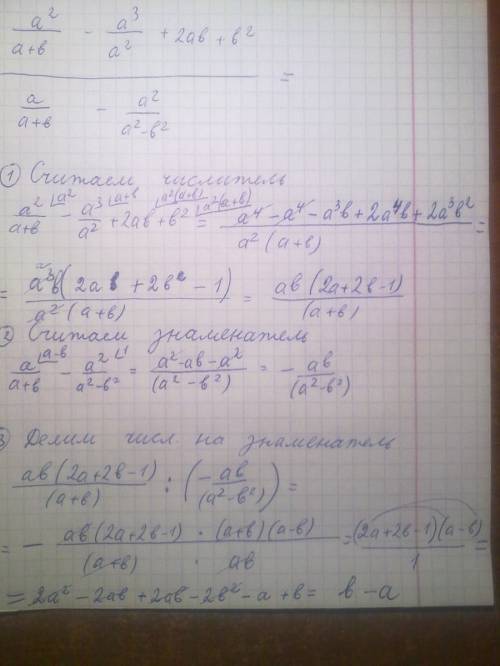 a²/(a+b) − a³/a² + 2ab + b²
a/(a+b) − a²/(a²−b²) =
① Считаем числитель
a²/(a+b) ⌊a² − a³/a² ⌊a+b + 2ab ⌊a²(a+b) + b² ⌊a²(a+b) = (a⁴ − a⁴ − a³b + 2a⁴b + 2a³b²)/(a²(a+b)) =
= a³b(2a + 2b − 1)/(a²(a+b)) = ab(2a+2b−1)/(a+b)
② Считаем знаменатель
a/(a+b) ⌊a−b − a²/(a²−b²) ⌊1 = (a²−ab−a²)/(a²−b²) = − ab/(a²−b²)
3 Делим числ. на знаменатель
ab(2a+2b−1)/(a+b) : (− ab/(a²−b²)) =
= − ab(2a+2b−1)·(a+b)(a−b)/((a+b) · ab) = (2a+2b−1)(a−b)/1 =
= 2a² − 2ab + 2ab − 2b² − a + b = b − a